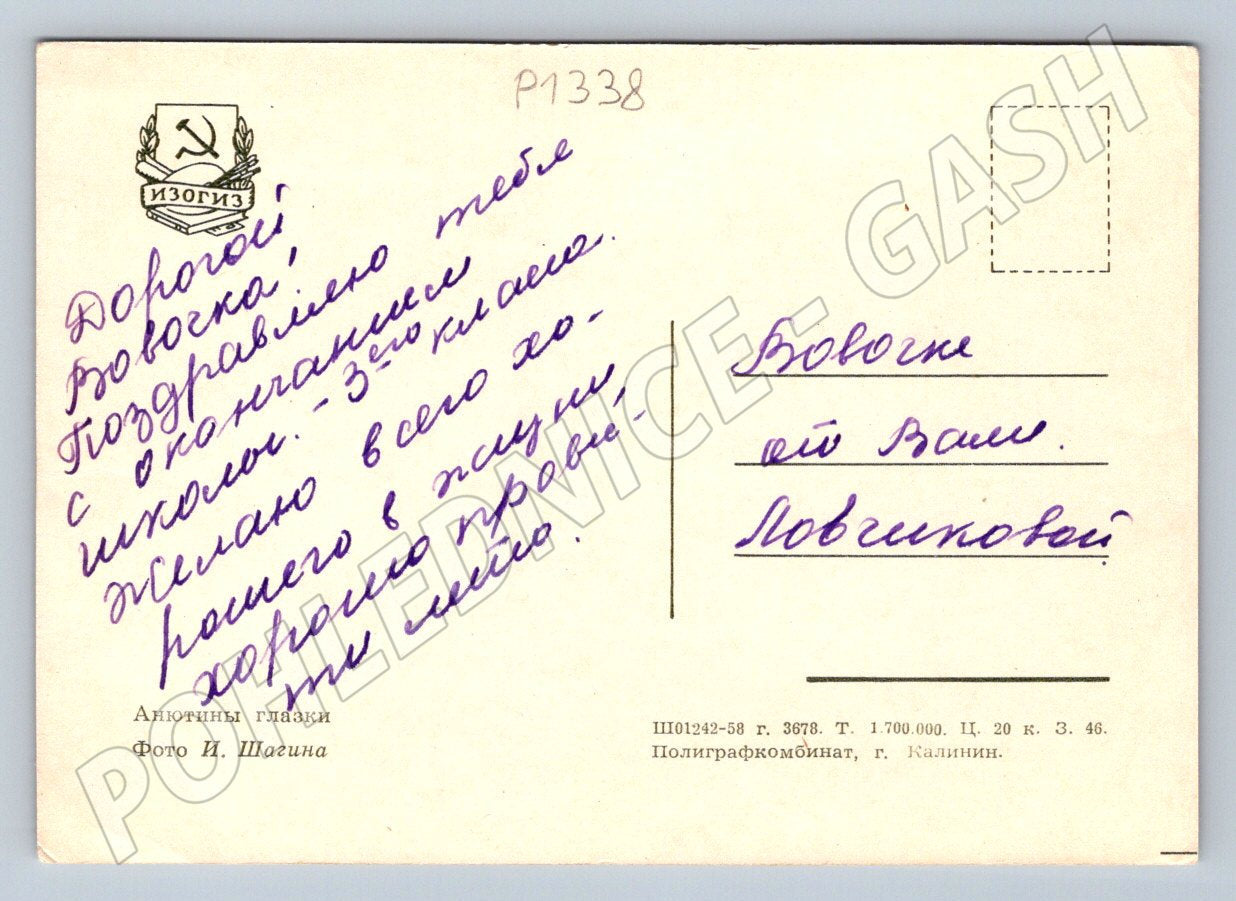 P1338
ИЗОГИЗ
Дорогой
Вовочка!
Поздравляю тебя
с окончанием
школы. - 3его класса.
Желаю всего хо-
рошего в жизни,
хорошо прове-
ти лето.
Вовочке
от Вали.
Ловчиковой
Анютины глазки
Фото И. Шагина
Ш01242-58 г. 3678. Т. 1.700.000. Ц. 20 к. З. 46.
Полиграфкомбинат, г. Калинин.
POHLEDNICE - GASH